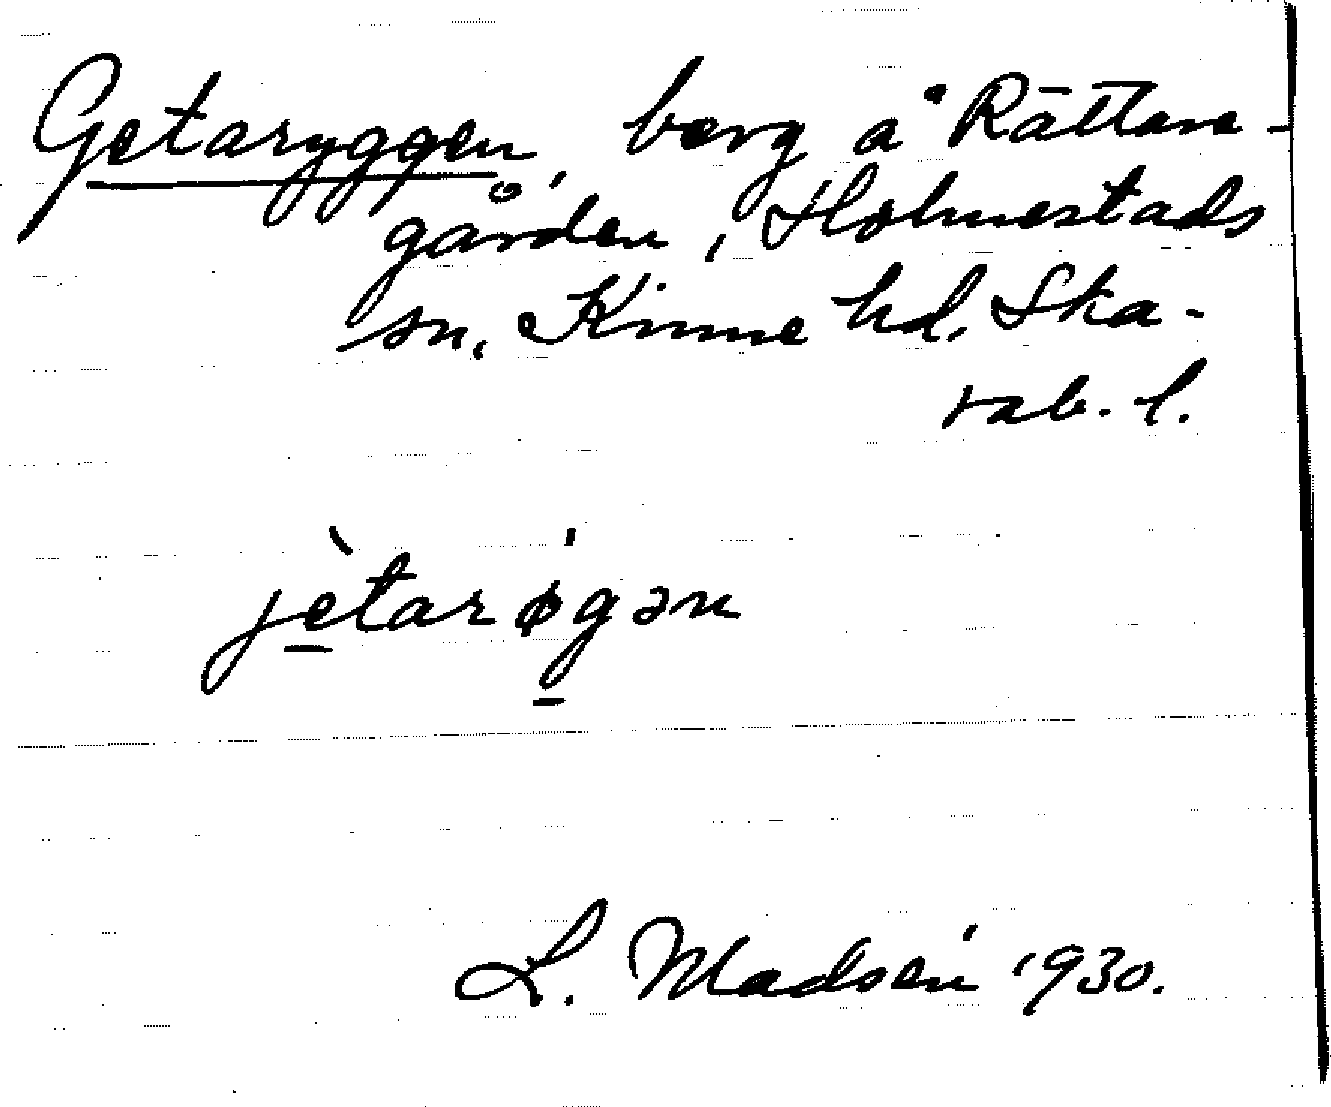 Getaryggen, berg å Rättare-
gården, Holmestads
sn, Kinne hd, Ska-
rab. l.
jètarø̍gən
L. Madsén 1930.